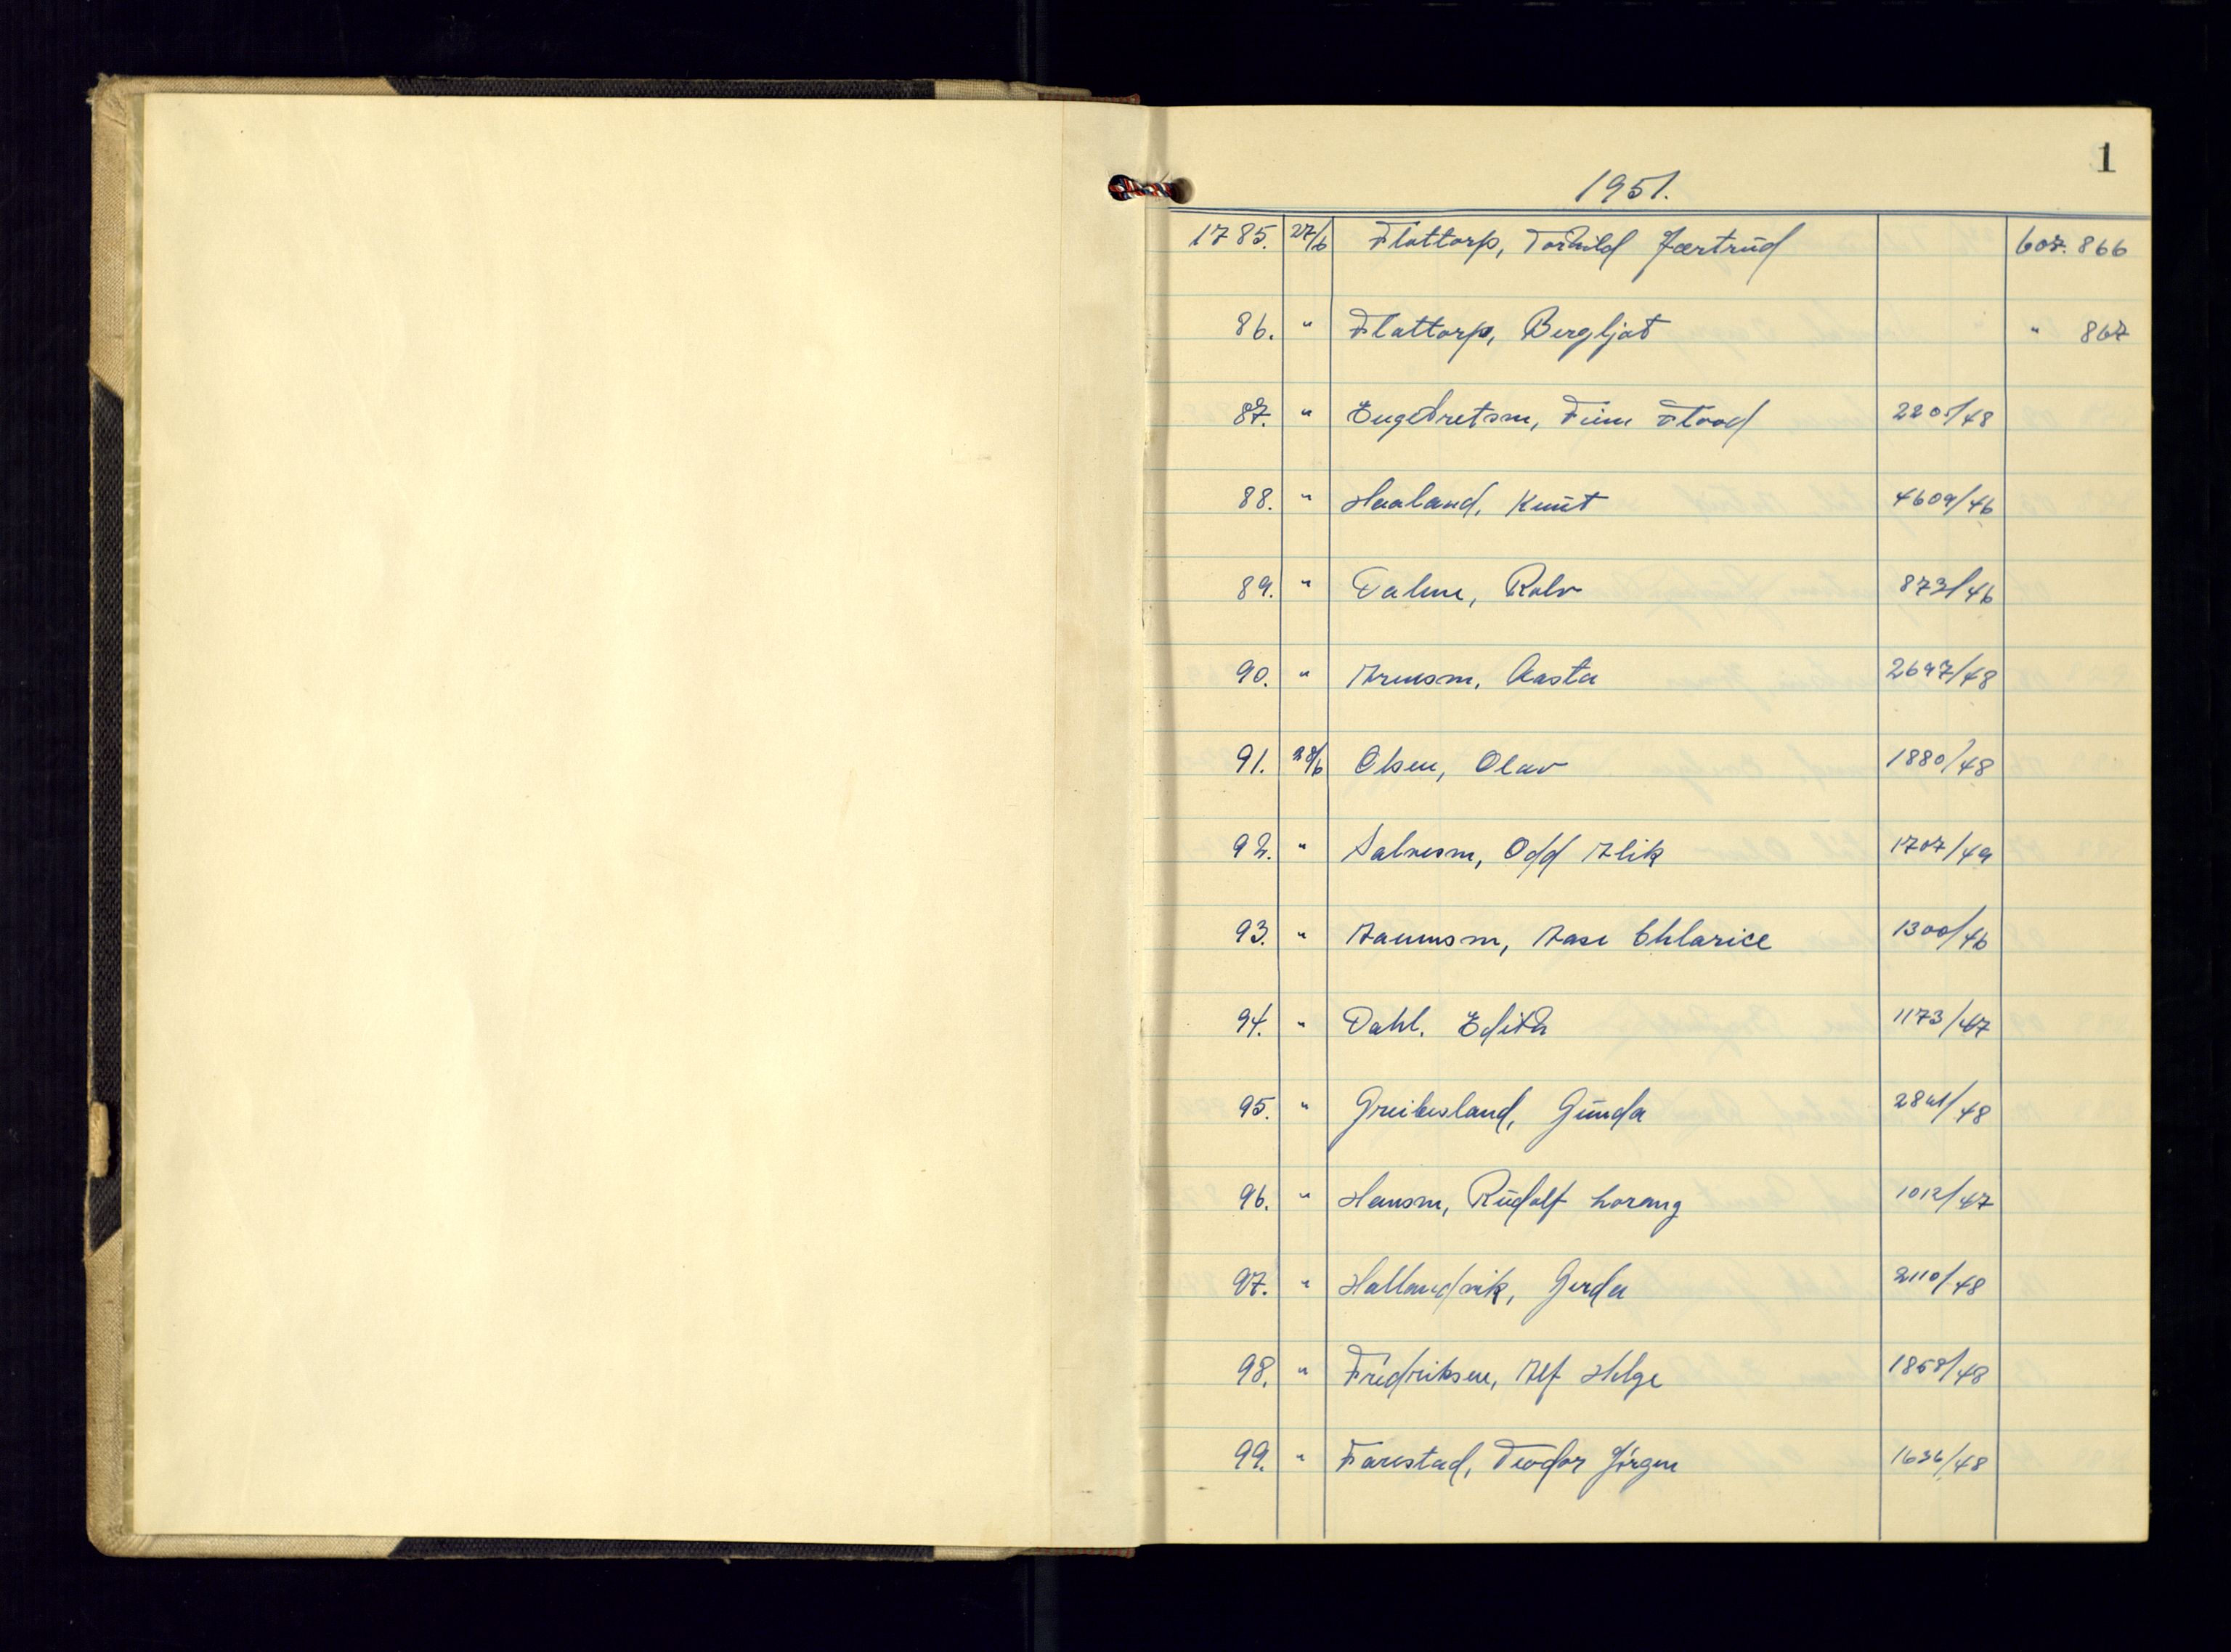 1
1951.
1785. 27/6 Flottorp, Torhild Jærtrud 607.866
86. " Flottorp, Bergljot " 867
87. " Engebretsen, Finn Flood 2205/48
88. " Haaland, Knut 4609/46
89. " Dalene, Rolv 873/46
90. " Arensen, Aasta 2697/48
91. 28/6 Olsen, Olav 1880/48
92. " Salvesen, Odd Alik 1707/49
93. " Aanensen, Aase Chlarice 1300/46
94. " Dahl. Edith 1173/47
95. " Greibesland, Gunda /48
96. " Hansen, Rudolf Lorang 1012/47
97. " Hallandvik, Gerda 2110/48
98. " Fredriksen, Alf Helge 1858/48
99. " Farestad, Teodor Jørgen 1636/48